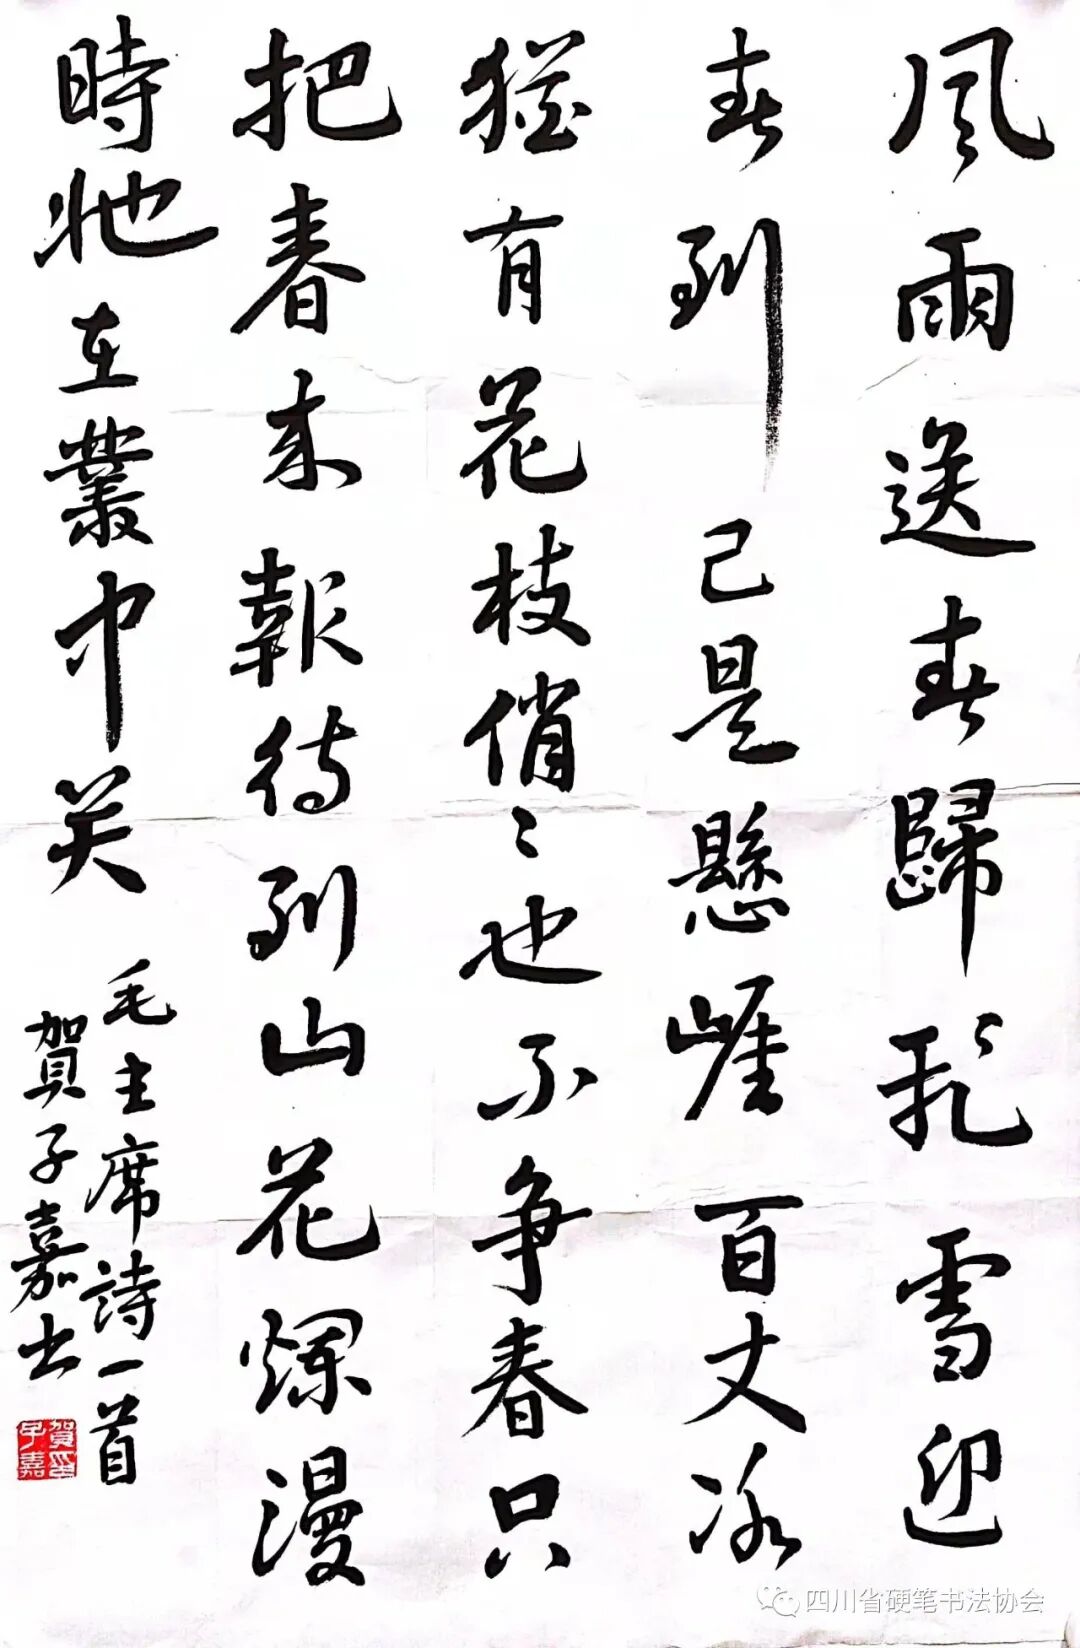 风雨送春歸飛雪迎
春到已是懸崖百丈冰
猶有花枝俏俏也不争春只
把春来報待到山花爛漫
時她在叢中笑
毛主席詩一首
賀子嘉书
賀印子嘉
四川省硬笔书法协会